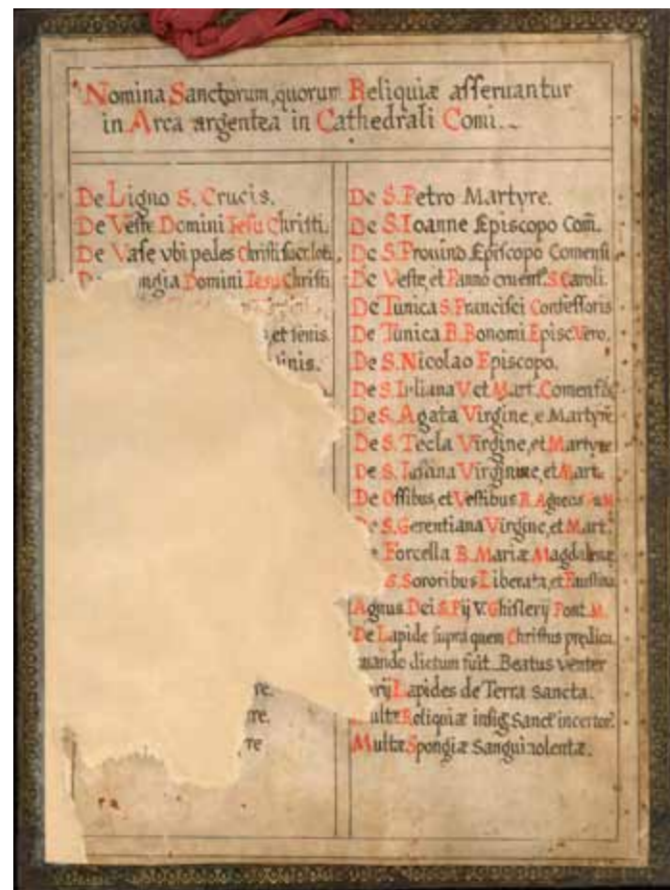 Nomina Sanctorum, quorum Reliquiæ asseruantur
in Arca argentea in Cathedrali Comi.
De Ligno S. Crucis.
De Veste Domini Iesu Christi.
De Vase vbi pedes Christi
Domini Iesu Christi
et
re.
re.
re
ra
De S. Petro Martyre.
De S. Ioanne Episcopo Com̃.
De S. Prouino Episcopo Comensi
De Veste, et Panno cruent. S. Caroli.
De Tunica S. Francisci Confessoris
De Tunica B. Bonomi Episc. Vero.
De S. Nicolao Episcopo.
De S. Liliana V et Mart. Comensis
De S. Agata Virgine, e Martyre
De S. Tecla Virgine, et Martyre
De S. Virginine, et Mart.
De Ossibus, et Vestibus B. Agnetis
De S. Gerentiana Virgine, et Mart.
Forcella B. Mariæ Magdalenæ
S. Sororibus Liberata, et Faustina
Agnus Dei S. Pij V. Ghislerij Pont. M.
De Lapide supra quem Christus predica
quando dictum fuit Beatus venter
Lapides de Terra sancta.
Multæ Reliquiæ insig Sanct incertor.
Multæ Spongiæ Sanguinolentæ.